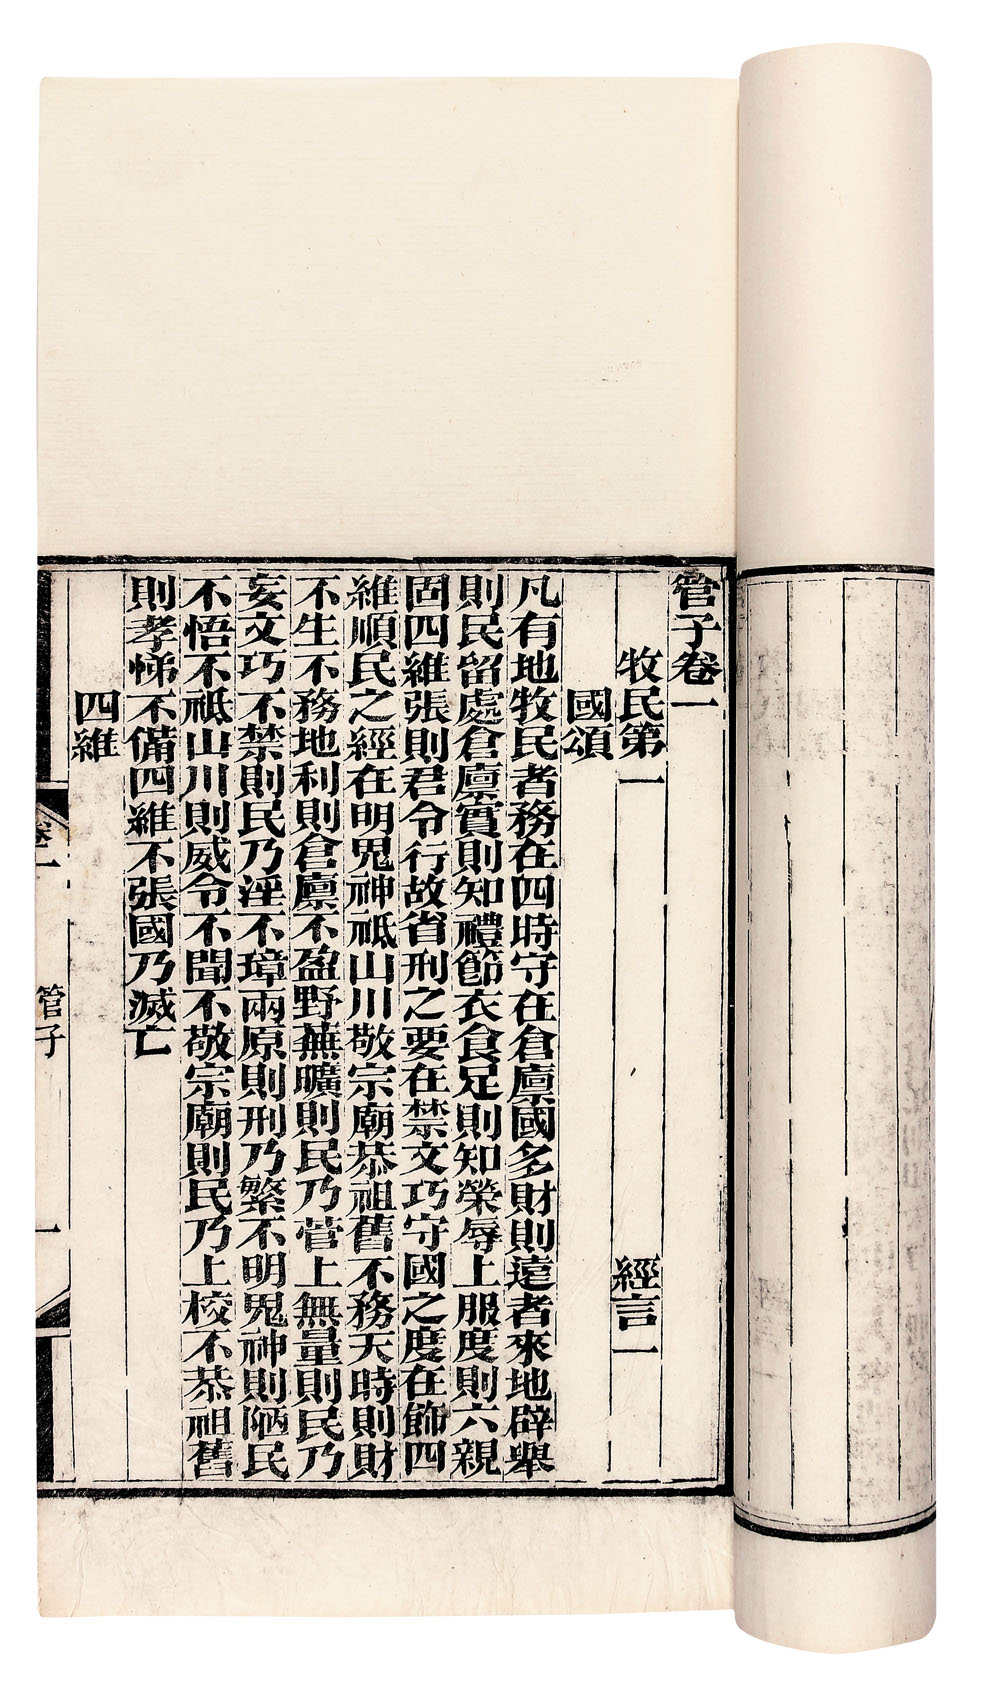 管子卷一
牧民第一 經言一
國頌
凡有地牧民者務在四時守在倉廩國多財則遠者來地辟舉
則民留處倉廩實則知禮節衣食足則知榮辱上服度則六親
固四維張則君令行故省刑之要在禁文巧守國之度在飾四
維順民之經在明鬼神祗山川敬宗廟恭祖舊不務天時則財
不生不務地利則倉廩不盈野蕪曠則民乃菅上無量則民乃
妄文巧不禁則民乃淫不璋兩原則刑乃繁不明鬼神則陋民
不悟不祗山川則威令不聞不敬宗廟則民乃上校不恭祖舊
則孝悌不備四維不張國乃滅亡
四維
卷一 管子 一